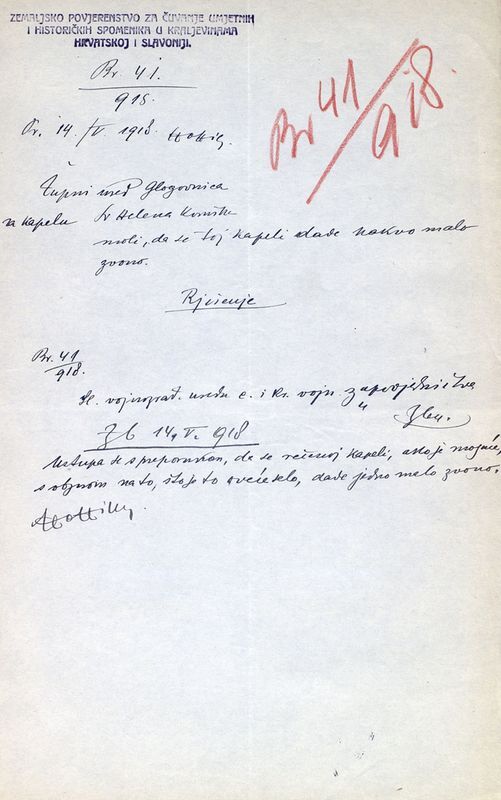 ZEMALJSKO POVJERENSTVO ZA ČUVANJE UMJETNIH
I HISTORIČKIH SPOMENIKA U KRALJEVINAMA
HRVATSKOJ I SLAVONIJI.
Br. 41.
918.
Br 41
918.
Pr. 14./V. 1918.
Župni ured Glogovnica
za kapelu Sv Helena
moli, da se toj kapeli dade kakvo malo
zvono.
Rješenje
Br. 41
918.
Sl. vojnograđ. uredu c. i kr. vojn. zapovjedništva
" Zbu.
Zb 14. V. 918
Ustupa se s preporukom, da se rečenoj kapeli, ako je moguće,
s obzirom na to, što je to veće selo, dade jedno malo zvono.